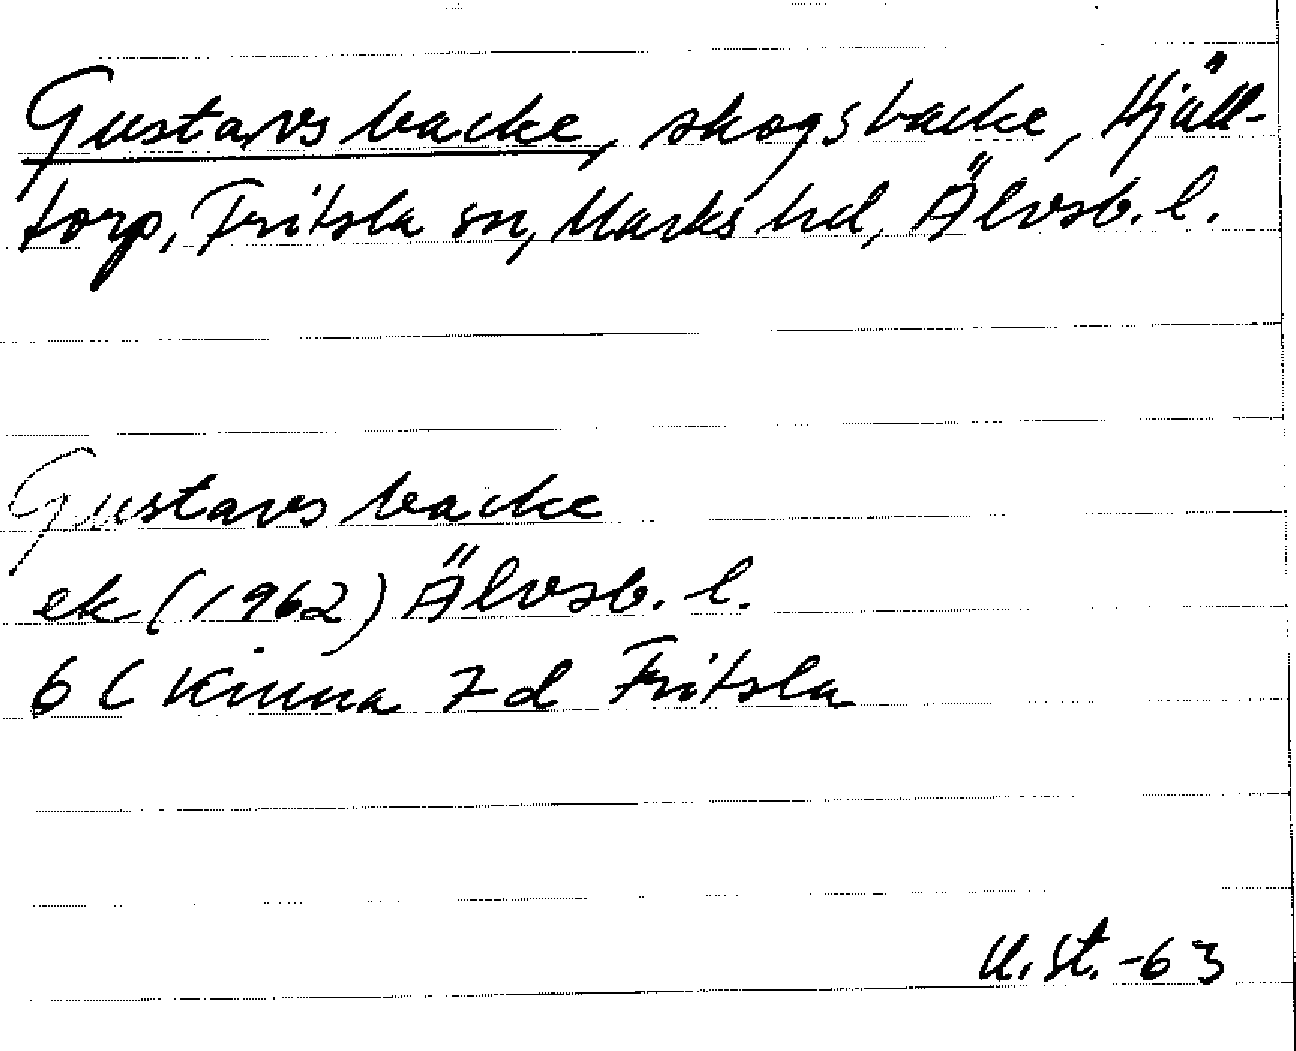 Gustavsbacke, skogsbacke, Hjäll-
torp, Fritsla sn, Marks hd, Älvsb. l.
Gustavsbacke
ek (1962) Älvsb. l.
6 C Kinna 7d Fritsla
U. St. -63